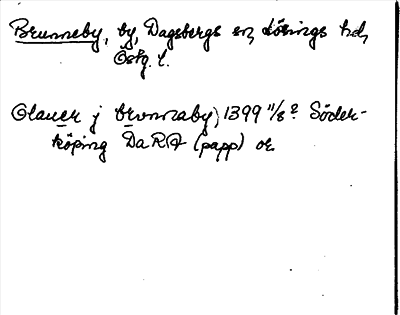 Brunneby, by, Dagsbergs sn, Lösings hd,
Östg. l.
Olauer j brvnnaby) 1399 11/8? Söder-
köping DaRA (papp) or.